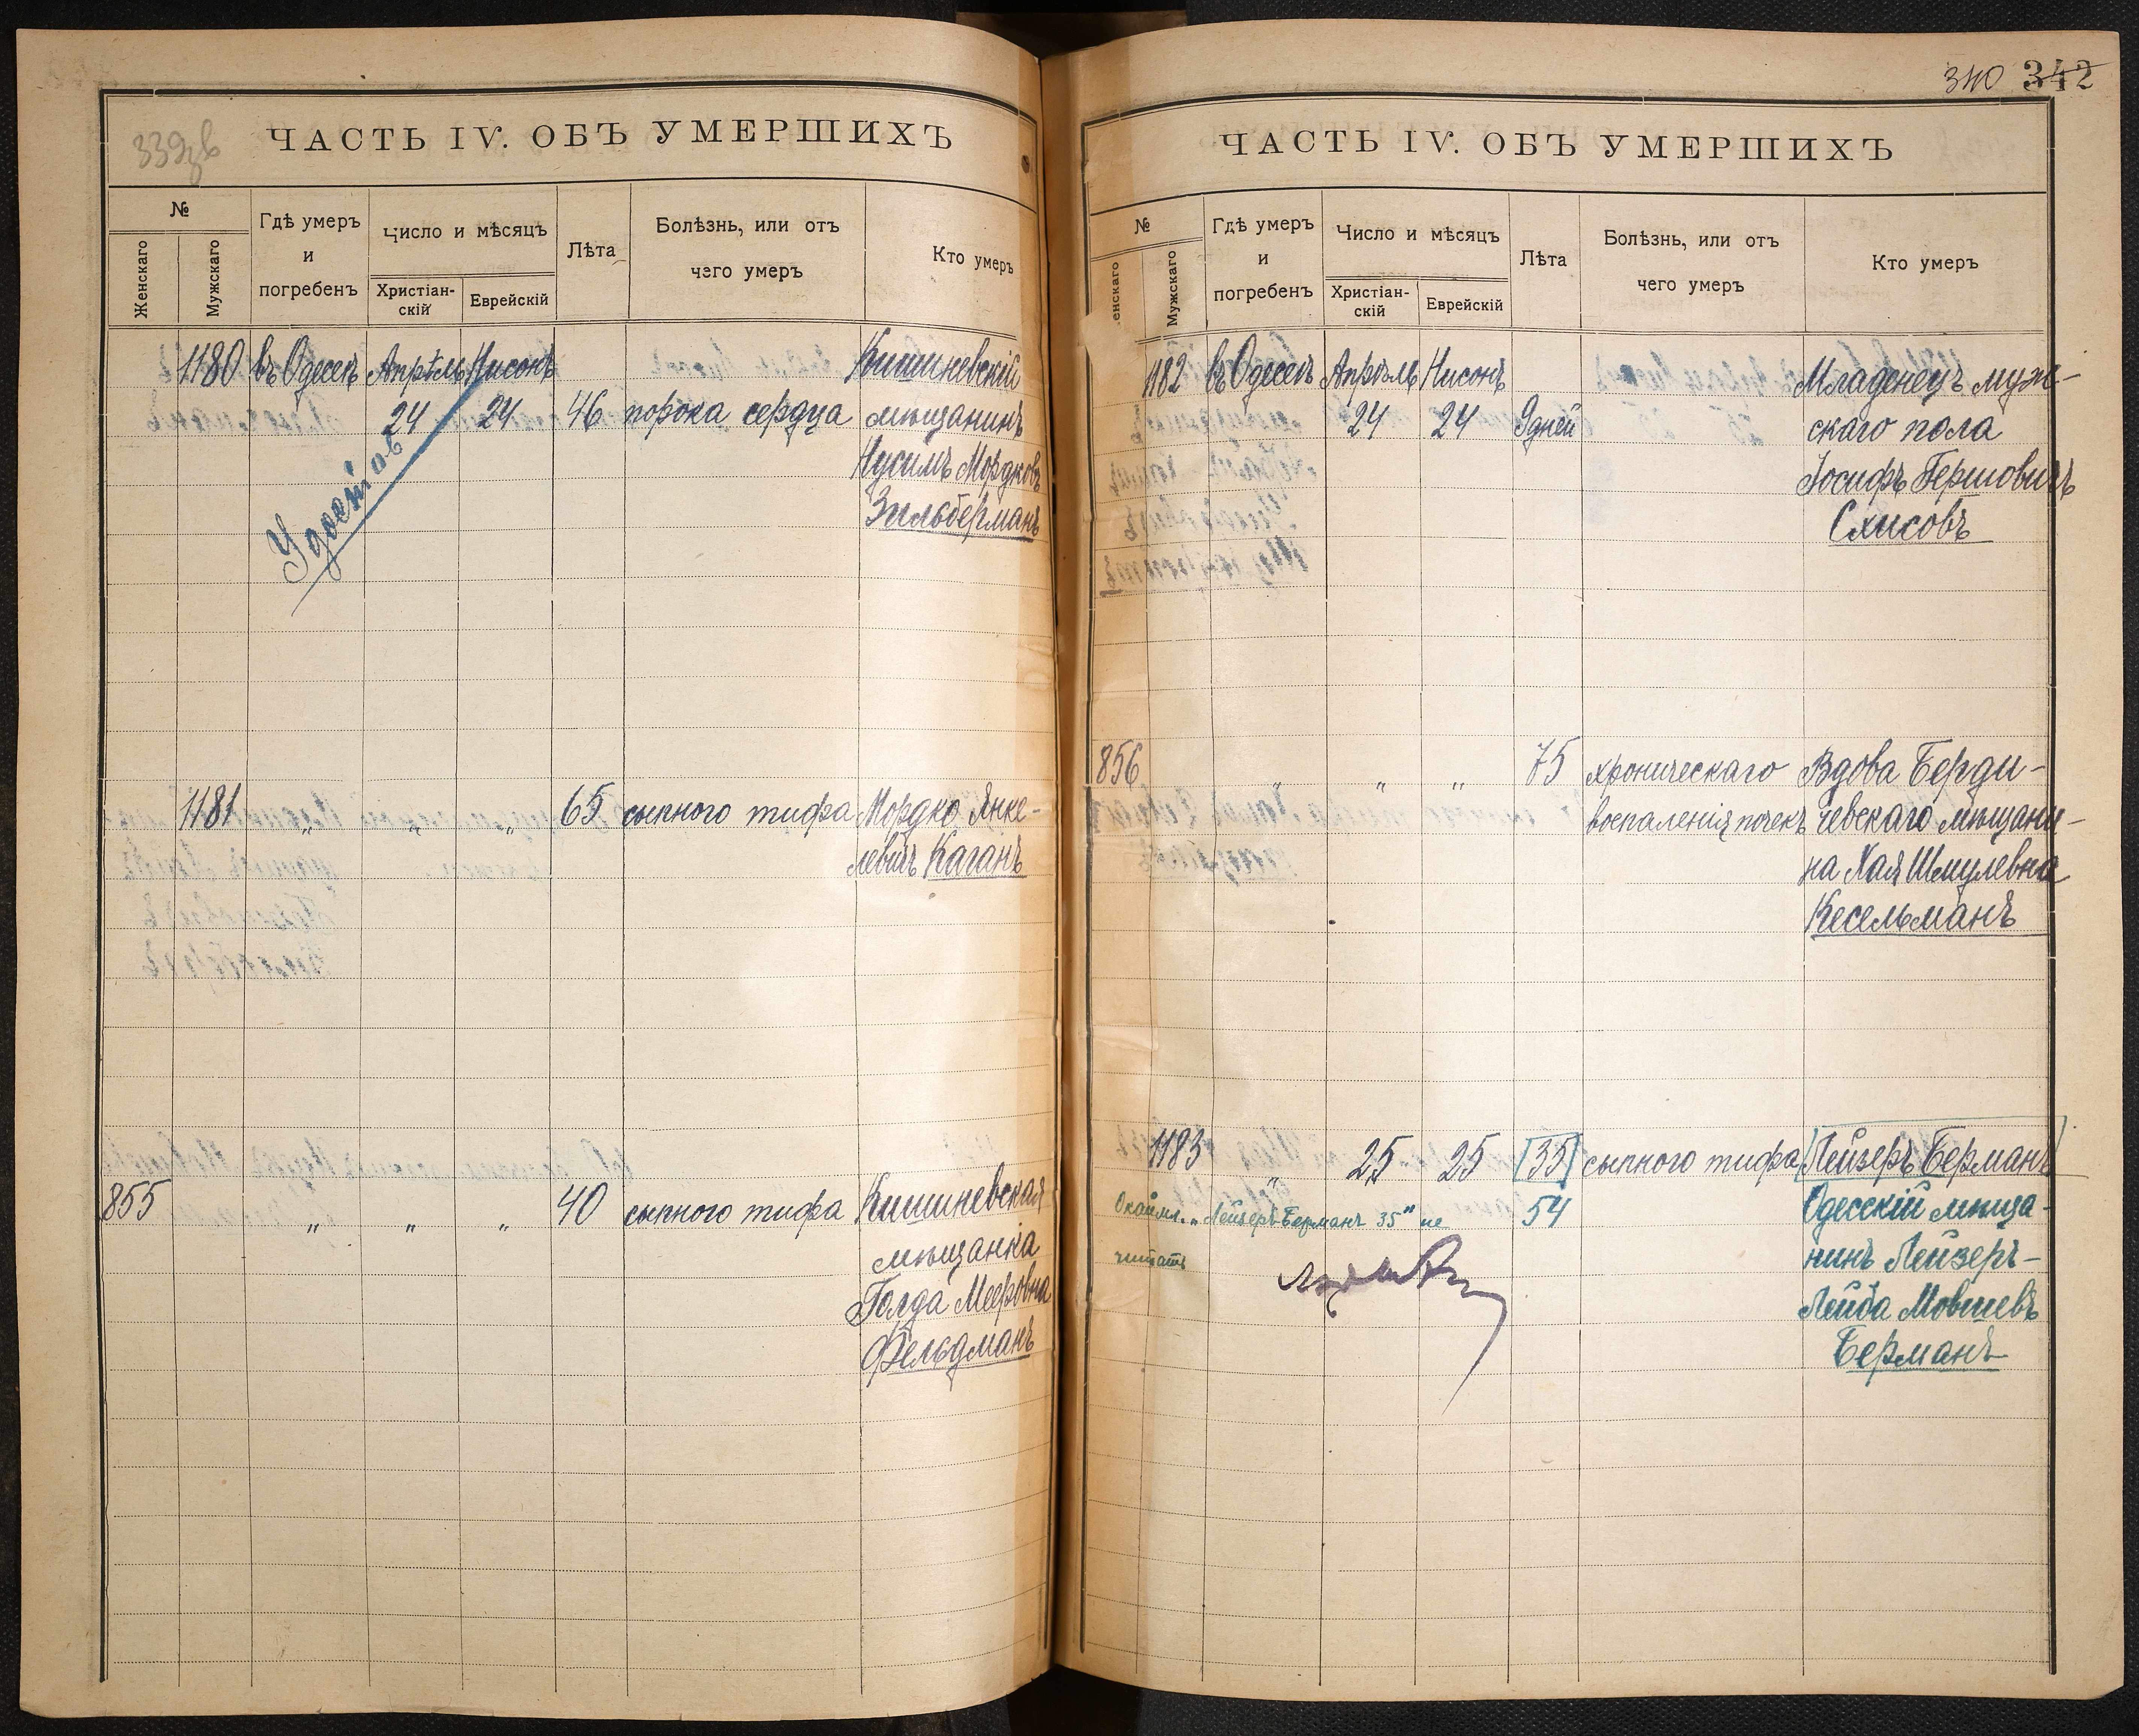 339зв
ЧАСТЬ IV. ОБЪ УМЕРШИХЪ
№
Женскаго
Мужскаго
Гдѣ умеръ
и
погребенъ
Число и мѣсяцъ
Христіан-
скій
Еврейскій
Лѣта
Болѣзнь, или отъ
чего умеръ
Кто умеръ
1180 въ Одессѣ Апрѣль Нисонъ Кишиневскій
24 24 46 порока сердца мѣщанинъ
Нусимъ Мордковъ
Зильберманъ
1181 " " " 65 сыпного тифа Мордко Янке-
левичъ Каганъ
855 " " " 40 сыпного тифа Кишиневская
мѣщанка
Голда Мееровна
Фельдманъ
340 342
ЧАСТЬ IV. ОБЪ УМЕРШИХЪ
№
енскаго
Мужскаго
Гдѣ умеръ
и
погребенъ
Число и мѣсяцъ
Христіан-
скій
Еврейскій
Лѣта
Болѣзнь, или отъ
чего умеръ
Кто умеръ
1182 въ Одессѣ Апрѣль Нисонъ Младенецъ муж-
24 24 9 дней скаго пола
Іосифъ Гершовичъ
Схисовъ
856 " " " 75 хроническаго Вдова Берди-
воспаленія почекъ чевскаго мѣщани-
на Хая Шмулевна
Кесельманъ
1183 " 25 25 [35] сыпного тифа [Лейзеръ Берманъ]
Окайм. "Лейзеръ Берманъ 35" не 54 Одесскій мѣща-
читать нинъ Лейзеръ-
Лейба Мовшевъ
Берманъ